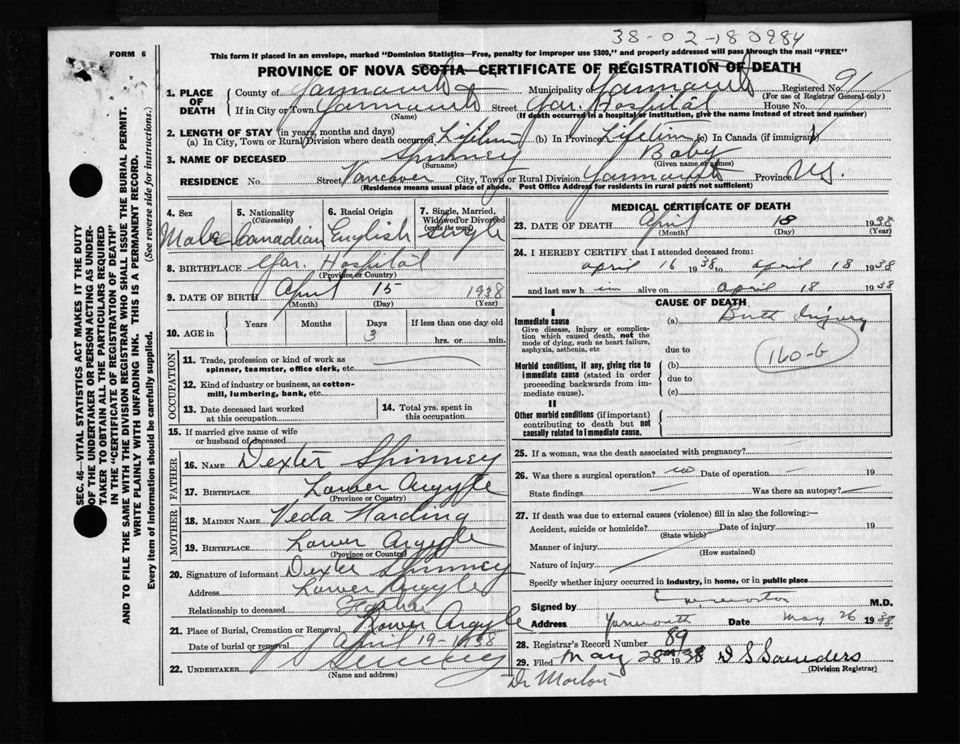 38-02-180984
FORM 6
This form if placed in an envelope, marked "Dominion Statistics—Free, penalty for improper use $300," and properly addressed will pass through the mail "FREE"
PROVINCE OF NOVA SCOTIA—CERTIFICATE OF REGISTRATION OF DEATH
SEC. 46—VITAL STATISTICS ACT MAKES IT THE DUTY
OF THE UNDERTAKER OR PERSON ACTING AS UNDER-
TAKER TO OBTAIN ALL THE PARTICULARS REQUIRED
IN THE "CERTIFICATE OF REGISTRATION OF DEATH"
AND TO FILE THE SAME WITH THE DIVISION REGISTRAR WHO SHALL ISSUE THE BURIAL PERMIT.
WRITE PLAINLY WITH UNFADING INK. THIS IS A PERMANENT RECORD.
Every item of information should be carefully supplied. (See reverse side for instructions.)
1. PLACE OF DEATH County of Yarmouth Municipality of Yarmouth Registered No. 91
(For use of Registrar General only)
If in City or Town Yarmouth Street Yar. Hospital House No.
(Name) (If death occurred in a hospital or institution, give the name instead of street and number)
2. LENGTH OF STAY (in years, months and days)
(a) In City, Town or Rural Division where death occurred Lifetime (b) In Province Lifetime (c) In Canada (if immigrant)
3. NAME OF DECEASED Spinney Baby
(Surname) (Given name or names)
RESIDENCE No. Street Vancouver City, Town or Rural Division Yarmouth Province N.S.
(Residence means usual place of abode. Post Office Address for residents in rural parts not sufficient)
4. Sex Male
5. Nationality (Citizenship) Canadian
6. Racial Origin English
7. Single, Married, Widowed or Divorced (write the word) Single
8. BIRTHPLACE Yar. Hospital
(Province or Country)
9. DATE OF BIRTH April 15 1938
(Month) (Day) (Year)
10. AGE in Years Months Days 3 If less than one day old hrs. or min.
OCCUPATION
11. Trade, profession or kind of work as
spinner, teamster, office clerk, etc.
12. Kind of industry or business, as cotton-
mill, lumbering, bank, etc.
13. Date deceased last worked
at this occupation
14. Total yrs. spent in
this occupation
15. If married give name of wife
or husband of deceased
FATHER
16. NAME Dexter Spinney
17. BIRTHPLACE Lower Argyle
(Province or Country)
MOTHER
18. MAIDEN NAME Veda Harding
19. BIRTHPLACE Lower Argyle
(Province or Country)
20. Signature of informant Dexter Spinney
Address Lower Argyle
Relationship to deceased Father
21. Place of Burial, Cremation or Removal Lower Argyle
Date of burial or removal April 19-1938
22. UNDERTAKER Sweeney
(Name and address)
Dr Morton
MEDICAL CERTIFICATE OF DEATH
23. DATE OF DEATH April 18 1938
(Month) (Day) (Year)
24. I HEREBY CERTIFY that I attended deceased from:
April 16 1938 to April 18 1938
and last saw him alive on April 18 1938
CAUSE OF DEATH
I
Immediate cause (a) Birth Injury
Give disease, injury or complica-
tion which caused death, not the
mode of dying, such as heart failure,
asphyxia, asthenia, etc
due to
160-b
Morbid conditions, if any, giving rise to
immediate cause (stated in order
proceeding backwards from im-
mediate cause).
(b)
due to
(c)
II
Other morbid conditions (if important)
contributing to death but not
causally related to immediate cause.
25. If a woman, was the death associated with pregnancy?
26. Was there a surgical operation? no Date of operation 19
State findings Was there an autopsy?
27. If death was due to external causes (violence) fill in also the following:—
Accident, suicide or homicide? Date of injury 19
(State which)
Manner of injury
(How sustained)
Nature of injury
Specify whether injury occurred in industry, in home, or in public place
Signed by M.D.
Address Yarmouth Date May 26 1938
28. Registrar's Record Number 89
29. Filed May 28 1938 D S Saunders
(Division Registrar)